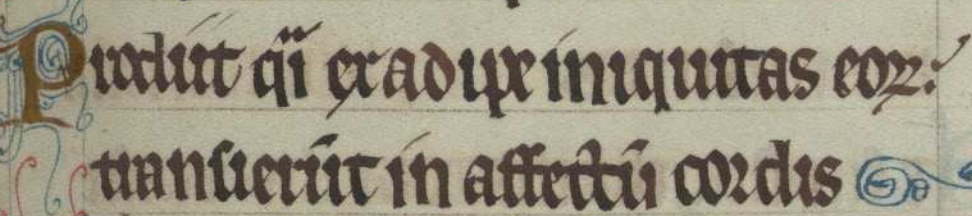 Prodiit q̄i ex adipe iniquitas eoꝝ:
transierūt in affectū cordis